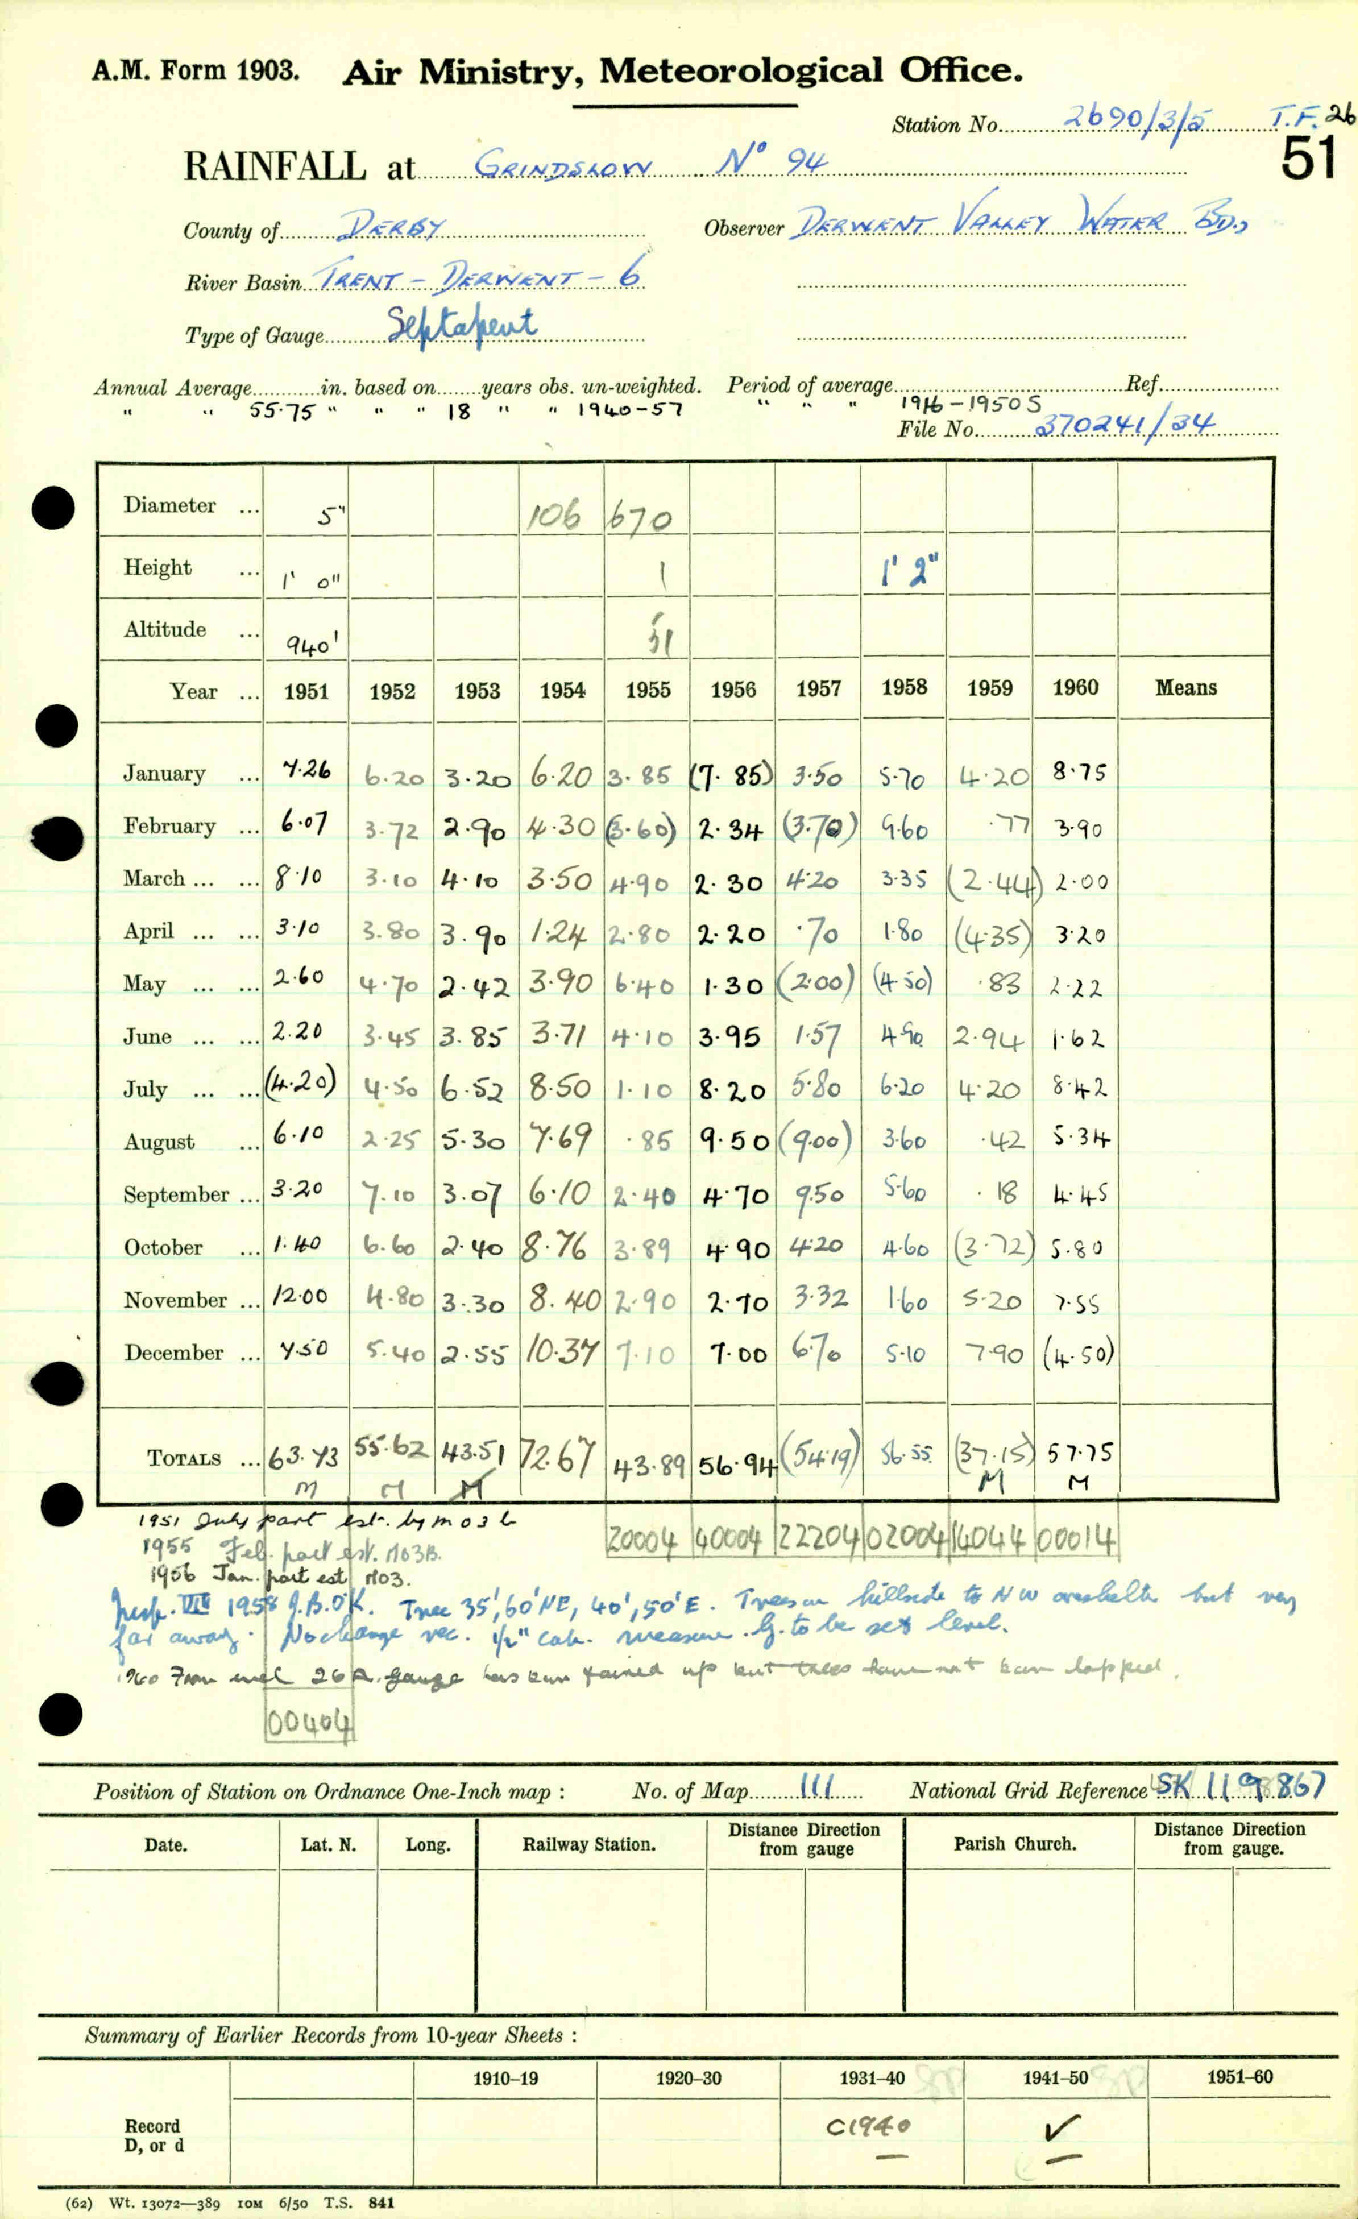 A.M. Form 1903. Air Ministry, Meteorological Office.
Station No. 2690/3/5 T.F. 26
RAINFALL at GRINDSLOW No 94 51
County of DERBY Observer DERWENT VALLEY WATER BD.
River Basin TRENT - DERWENT - 6
Type of Gauge Septapent
Annual Average in. based on years obs. un-weighted. Period of average Ref.
" " 55.75 " " " 18 " " 1940-57 " " " 1916-1950 S
File No. 370241/34
Diameter ... 5" 106 670
Height ... 1' 0" 1 1' 2"
Altitude ... 940' 51
Year ... 1951 1952 1953 1954 1955 1956 1957 1958 1959 1960 Means
January ... 7.26 6.20 3.20 6.20 3.85 (7.85) 3.50 5.70 4.20 8.75
February ... 6.07 3.72 2.90 4.30 (3.60) 2.34 (3.70) 9.60 .77 3.90
March ... ... 8.10 3.10 4.10 3.50 4.90 2.30 4.20 3.35 (2.44) 2.00
April ... ... 3.10 3.80 3.90 1.24 2.80 2.20 .70 1.80 (4.35) 3.20
May ... ... 2.60 4.70 2.42 3.90 6.40 1.30 (2.00) (4.50) .83 2.22
June ... ... 2.20 3.45 3.85 3.71 4.10 3.95 1.57 4.90 2.94 1.62
July ... ... (4.20) 4.50 6.52 8.50 1.10 8.20 5.80 6.20 4.20 8.42
August ... 6.10 2.25 5.30 7.69 .85 9.50 (9.00) 3.60 .42 5.34
September ... 3.20 7.10 3.07 6.10 2.40 4.70 9.50 5.60 .18 4.45
October ... 1.40 6.60 2.40 8.76 3.89 4.90 4.20 4.60 (3.72) 5.80
November ... 12.00 4.80 3.30 8.40 2.90 2.70 3.32 1.60 5.20 7.55
December ... 7.50 5.40 2.55 10.37 7.10 7.00 6.70 5.10 7.90 (4.50)
TOTALS ... 63.73 55.62 43.51 72.67 43.89 56.94 (54.19) 56.55 (37.15) 57.75
M M M M M
1951 July part est. by m o 3 b
20004 40004 22204 02004 14044 00014
1955 Feb. part est. MO3B.
1956 Jan. part est MO3.
Insp. VIII 1958 J.B. OK. Tree 35', 60' NE, 40', 50' E. Trees on hillside to NW overshelter but very
far away. No change rec. 1/2" cap. measure. G. to be set level.
1960 From insp 26A. gauge has been raised up but trees have not been lopped.
00404
Position of Station on Ordnance One-Inch map : No. of Map 111 National Grid Reference SK 119 867
Date. Lat. N. Long. Railway Station. Distance Direction from gauge Parish Church. Distance Direction from gauge.
Summary of Earlier Records from 10-year Sheets :
1910-19 1920-30 1931-40 1941-50 1951-60
Record D, or d C1940 ✓
(62) Wt. 13072—389 10M 6/50 T.S. 841